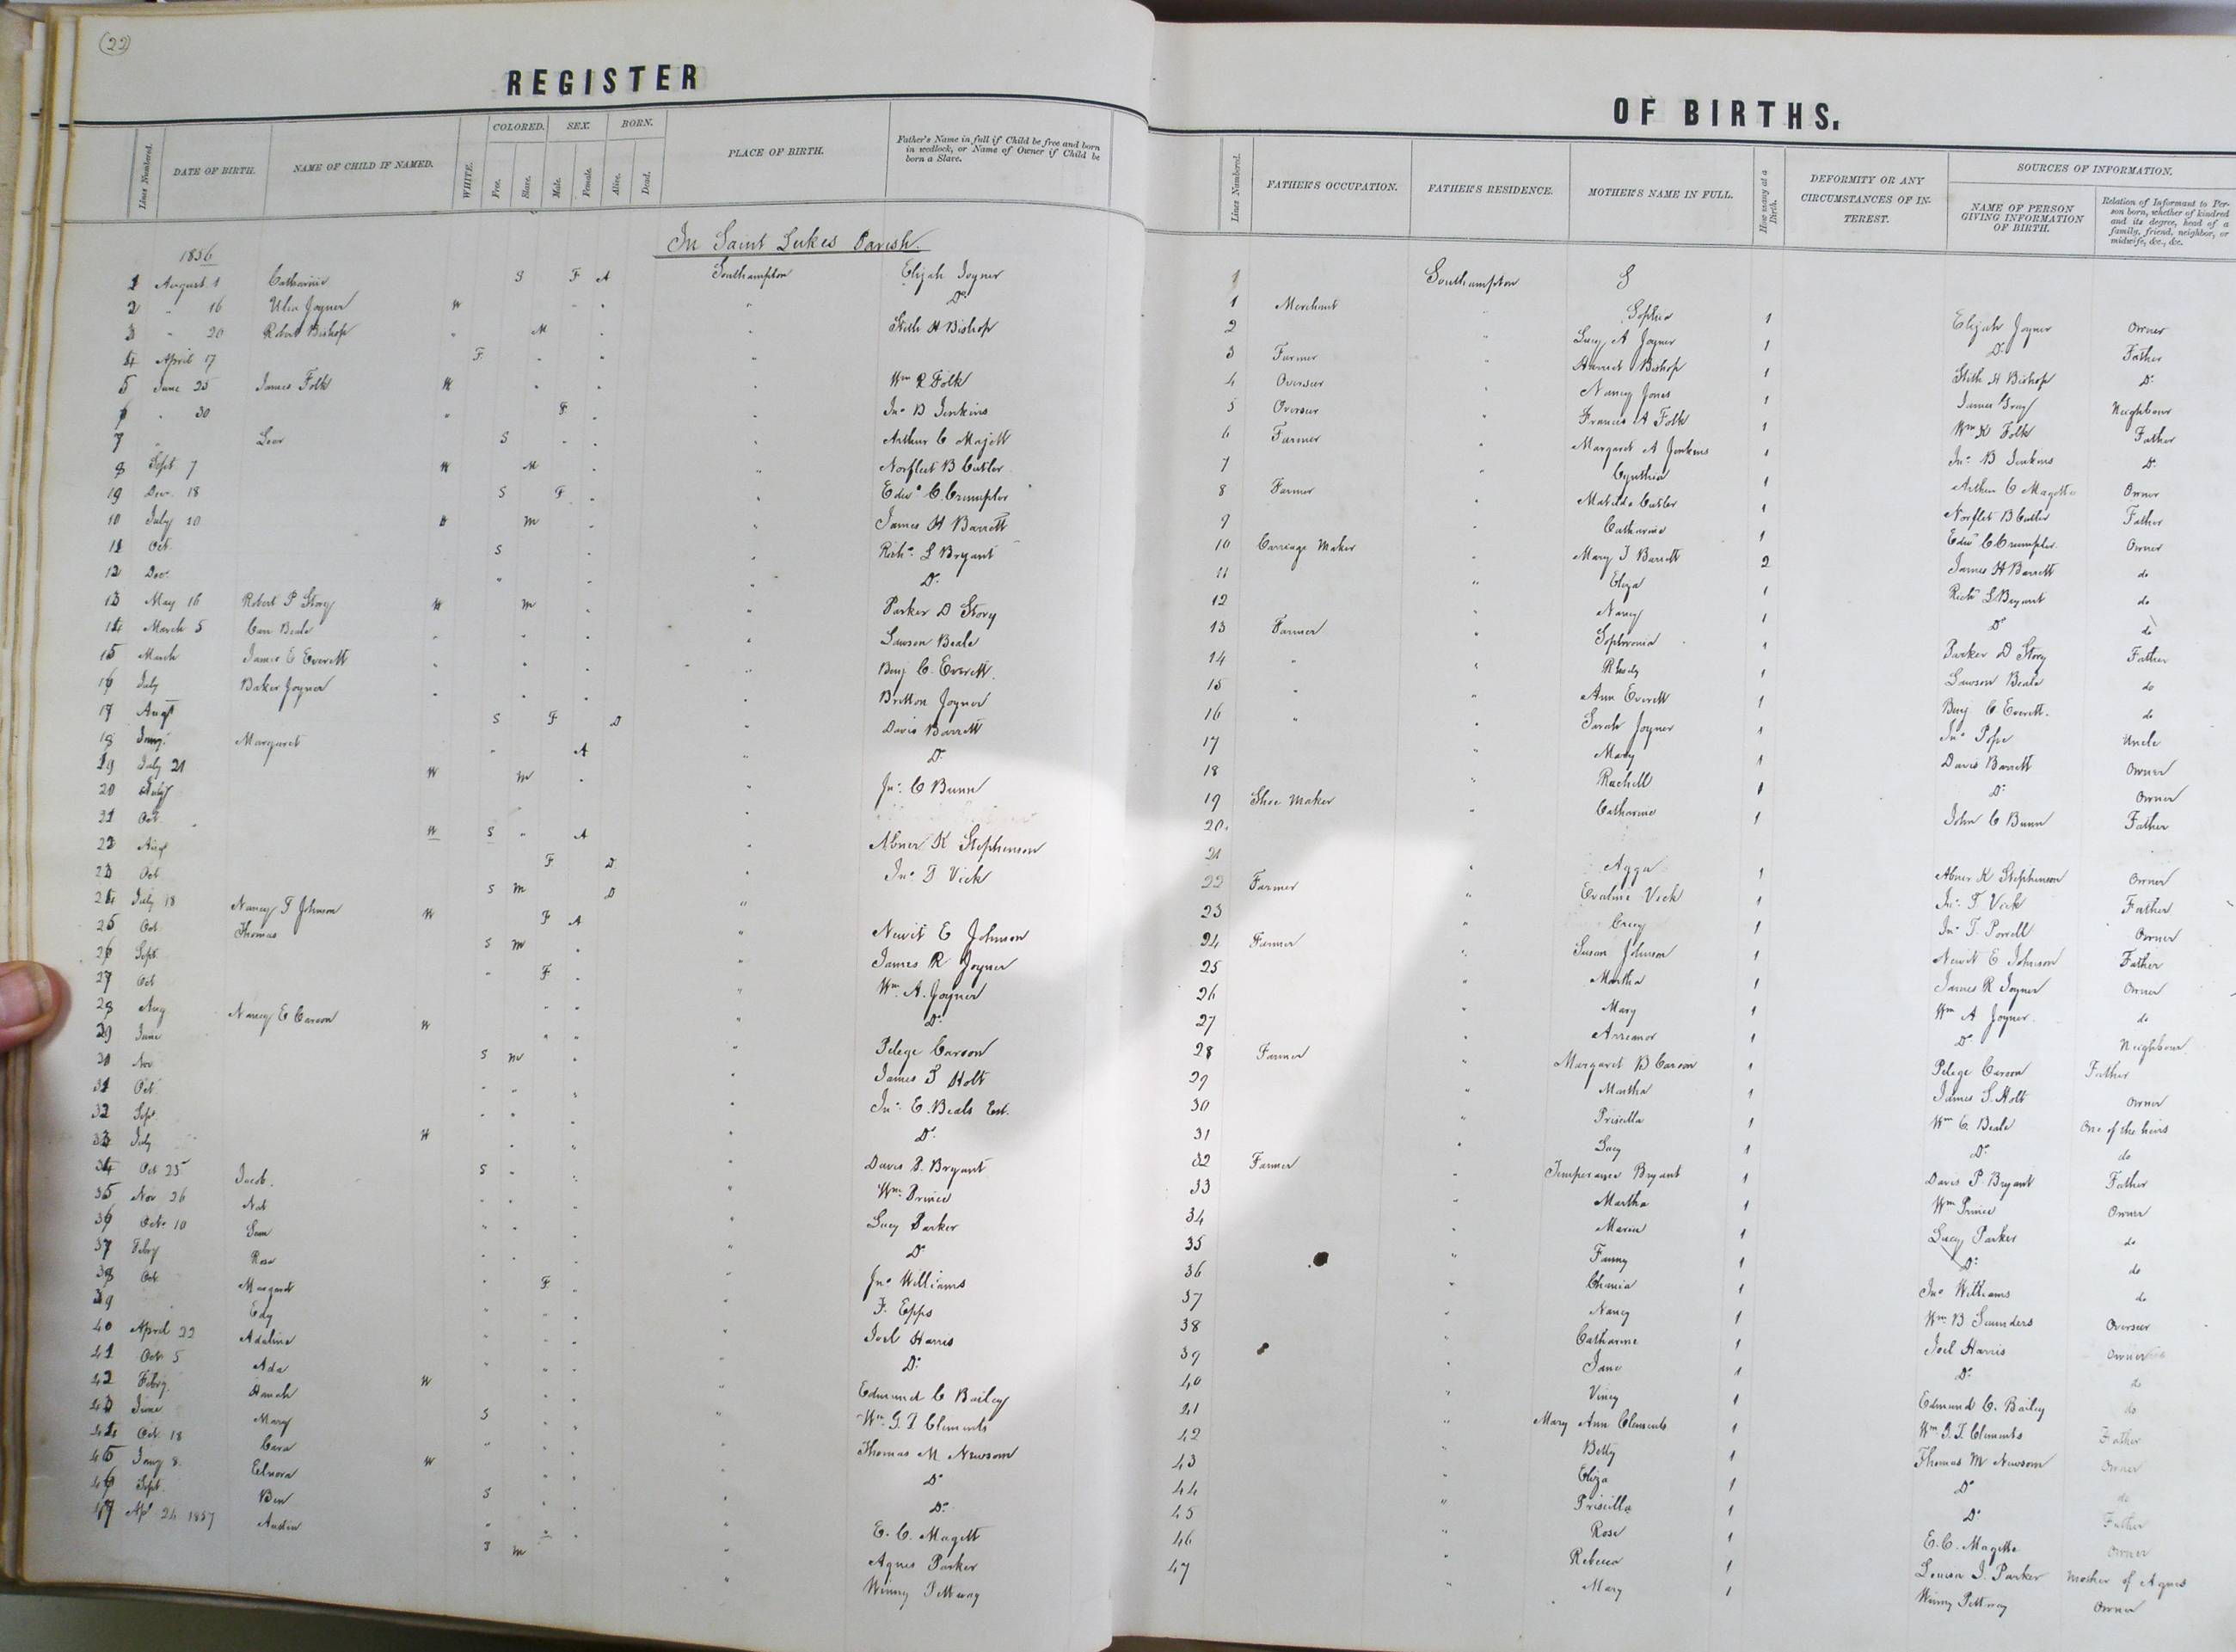 (22)
REGISTER
Lines Numbered. DATE OF BIRTH. NAME OF CHILD IF NAMED. WHITE. COLORED. Free. Slave. SEX. Male. Female. BORN. Alive. Dead. PLACE OF BIRTH. Father's Name in full if Child be free and born in wedlock, or Name of Owner if Child be born a Slave.
In Saint Lukes Parish.
1856
1 August 1 Catharine S F A Southampton Elijah Joyner
2 " 16 Joyner W " " " Do
3 " 20 Robert Bishop " M " " Stith H Bishop
4 April 17 F " " "
5 June 25 James Folk W " " " Wm R Folk
6 " 30 " F " " Jno B Jenkins
7 " S " " " Arthur C Majett
8 Sept 7 W M " " Norfleet B Cutler
9 Dec. 18 S F " " Edwd C. Crumpler
10 July 20 M " " James H Barrett
11 Oct. S " " Richd L Bryant
12 Dec. " " " Do
13 May 16 Robert P Story W M " " Parker D Story
14 March 5 Beale " " " " Lawson Beale
15 March James E Everett " " " " Benj C. Everett.
16 July Baker Joyner " " " " Britton Joyner
17 Augt S F D " Davis Barrett
18 Jany. Margaret " A " Do
19 July 21 W M " " Jno C Bunn
20
21 Oct. W S " A " Abner K Stephenson
22 Aug F D " Jno T Vick
23 Oct S M D "
24 July 18 Nancy T Johnson W F A " Newit E Johnson
25 Oct Thomas S M " " James R Joyner
26 Sept " F " " Wm A. Joyner
27 Oct " " " Do
28 Aug Nancy E Carson W " " " Pelege Carson
29 June S M " " James S Holt
30 Nov " " " " Jno E. Beals Est.
31 Oct. " " " " Do
32 Sept. W " " " Davis P. Bryant
33 July S " " " Wm Prince
34 Oct 25 Jacob. " " " " Lucy Parker
35 Nov 26 Nat " " " " Do
36 Octr 10 Sam " " " " Jno Williams
37 Feby Rose " F " " F. Epps
38 Oct Margaret " " " " Joel Harris
39 Edy " " " " Do
40 April 22 Adaline " " " " Edmund C Bailey
41 Oct 5 Ada W " " " Wm G T Clements
42 Feby. Hanah S " " " Thomas M Newsom
43 June Mary " " " " Do
44 Oct 18 Cora W " " " Do
45 Jany 8. Elnora S " " " E. C. Magett
46 Sept. Ben " " " " Agnes Parker
47 Apl 24 1857 Austin S M " Winny Pettway
OF BIRTHS.
Lines Numbered. FATHER'S OCCUPATION. FATHER'S RESIDENCE. MOTHER'S NAME IN FULL. How many at a Birth. DEFORMITY OR ANY CIRCUMSTANCES OF INTEREST. SOURCES OF INFORMATION. NAME OF PERSON GIVING INFORMATION OF BIRTH. Relation of Informant to Person born, whether of kindred and its degree, head of a family, friend, neighbor, or midwife, &c., &c.
1 Southampton S
1 Merchant " Sophia 1 Elijah Joyner Owner
2 " Lucy A Joyner 1 Do Father
3 Farmer " Bishop 1 Stith H Bishop Do
4 Overseer " Nancy Jones 1 James Gray Neighbour
5 Overseer " Frances A Folk 1 Wm R Folk Father
6 Farmer " Margaret A Jenkins 1 Jno B Jenkins Do
7 " Cynthia 1 Arthur C Magette Owner
8 Farmer " Matilda Cutler 1 Norflet B Cutler Father
9 " Catharine 1 Edwd C Crumpler. Owner
10 Carriage Maker " Mary J Barrett 2 James H Barrett do
11 " Eliza 1 Richd L Bryant do
12 " Nancy 1 Do do
13 Farmer " Sophronia 1 Parker D Story Father
14 " " Rhody Lawson Beale do
15 " " Ann Everett 1 Benj. C. Everett. do
16 " " Sarah Joyner 1 Jno Pope Uncle
17 " Mary 1 Davis Barrett Owner
18 " Rachell 1 Do Owner
19 Shoe Maker " Catharine 1 John C Bunn Father
20.
21 " Agga 1 Abner K Stephenson Owner
22 Farmer " Evaline Vick 1 Jno T Vick Father
23 " Creay 1 Jno T. Powell Owner
24 Farmer " Susan Johnson 1 Newit E Johnson Father
25 " Martha 1 James R Joyner Owner
26 " Mary 1 Wm A Joyner. do
27 " Arreanor 1 Do Neighbour
28 Farmer " Margaret B Carson 1 Pelege Carson Father
29 " Martha 1 James S. Holt Owner
30 " Priscilla 1 Wm C. Beale One of the heirs
31 " Lucy 1 Do do
32 Farmer " Temperance Bryant 1 Davis P Bryant Father
33 " Martha 1 Wm Prince Owner
34 " Maria 1 Lucy Parker do
35 " Fanny 1 Do do
36 " 1 Jno Williams do
37 " Nancy 1 Wm B Saunders Overseer
38 " Catharine 1 Joel Harris Owner
39 " Jane 1 Do do
40 " Viney 1 Edmund C. Bailey do
41 " Mary Ann Clements 1 Wm G. T. Clements Father
42 " Betty 1 Thomas M Newsom Owner
43 " Eliza 1 Do do
44 " Priscilla 1 Do Father
45 " Rose 1 E. C. Magette Owner
46 " Rebecca 1 Louisa J. Parker Mother of Agnes
47 " Mary 1 Winny Pettway Owner